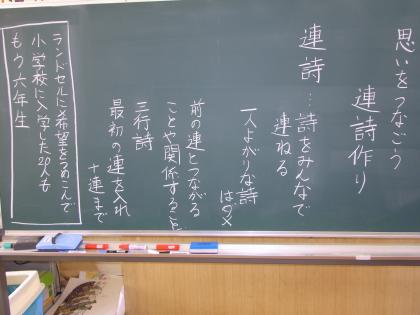 思いをつなごう
連詩作り
連詩…詩をみんなで
連ねる
一人よがりな詩
はダメ
前の連とつながる
ことや関係すること
三行詩
最初の連を入れ
十連まで
ランドセルに希望をつめこんで
小学校に入学した20人も
もう六年生